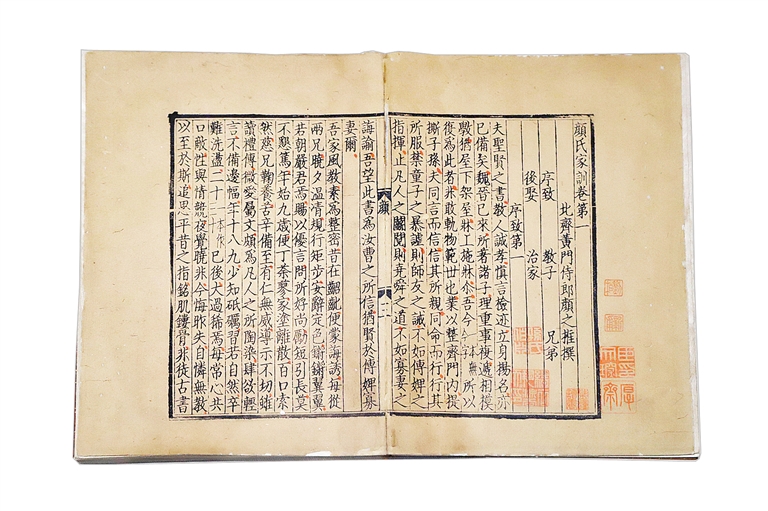 顔氏家訓卷第一
北齊黃門侍郎顔之推撰
序致　教子　兄弟
後娶　治家
序致第一
夫聖賢之書教人誠孝慎言檢迹立身揚名亦
已備矣魏晉已來所著諸子理重事複遞相模
斆猶屋下架屋牀上施牀爾吾今所以
復爲此者非敢軌物範世也業以整齊門内提
撕子孫夫同言而信信其所親同命而行行其
所服禁童子之暴謔則師友之誡不如傅婢之
指揮止凡人之鬬䦧則堯舜之道不如寡妻之
誨諭吾望此書爲汝曹之所信猶賢於傅婢寡
妻爾
吾家風教素爲整密昔在齠齔便蒙誨誘每從
兩兄曉夕温凊規行矩步安辭定色鏘鏘翼翼
若朝嚴君焉賜以優言問所好尚勵短引長莫
不懇篤年始九歲便丁荼蓼家塗離散百口索
然慈兄鞠養苦辛備至有仁無威導示不切雖
讀禮傳微愛屬文頗爲凡人之所陶染肆欲輕
言不備邊幅年十八九少知砥礪習若自然卒
難洗盪二十已後大過稀焉每常心共
口敵性與情競夜覺曉非今悔昨失自憐無教
以至於斯追思平昔之指銘肌鏤骨非徒古書
顔
二